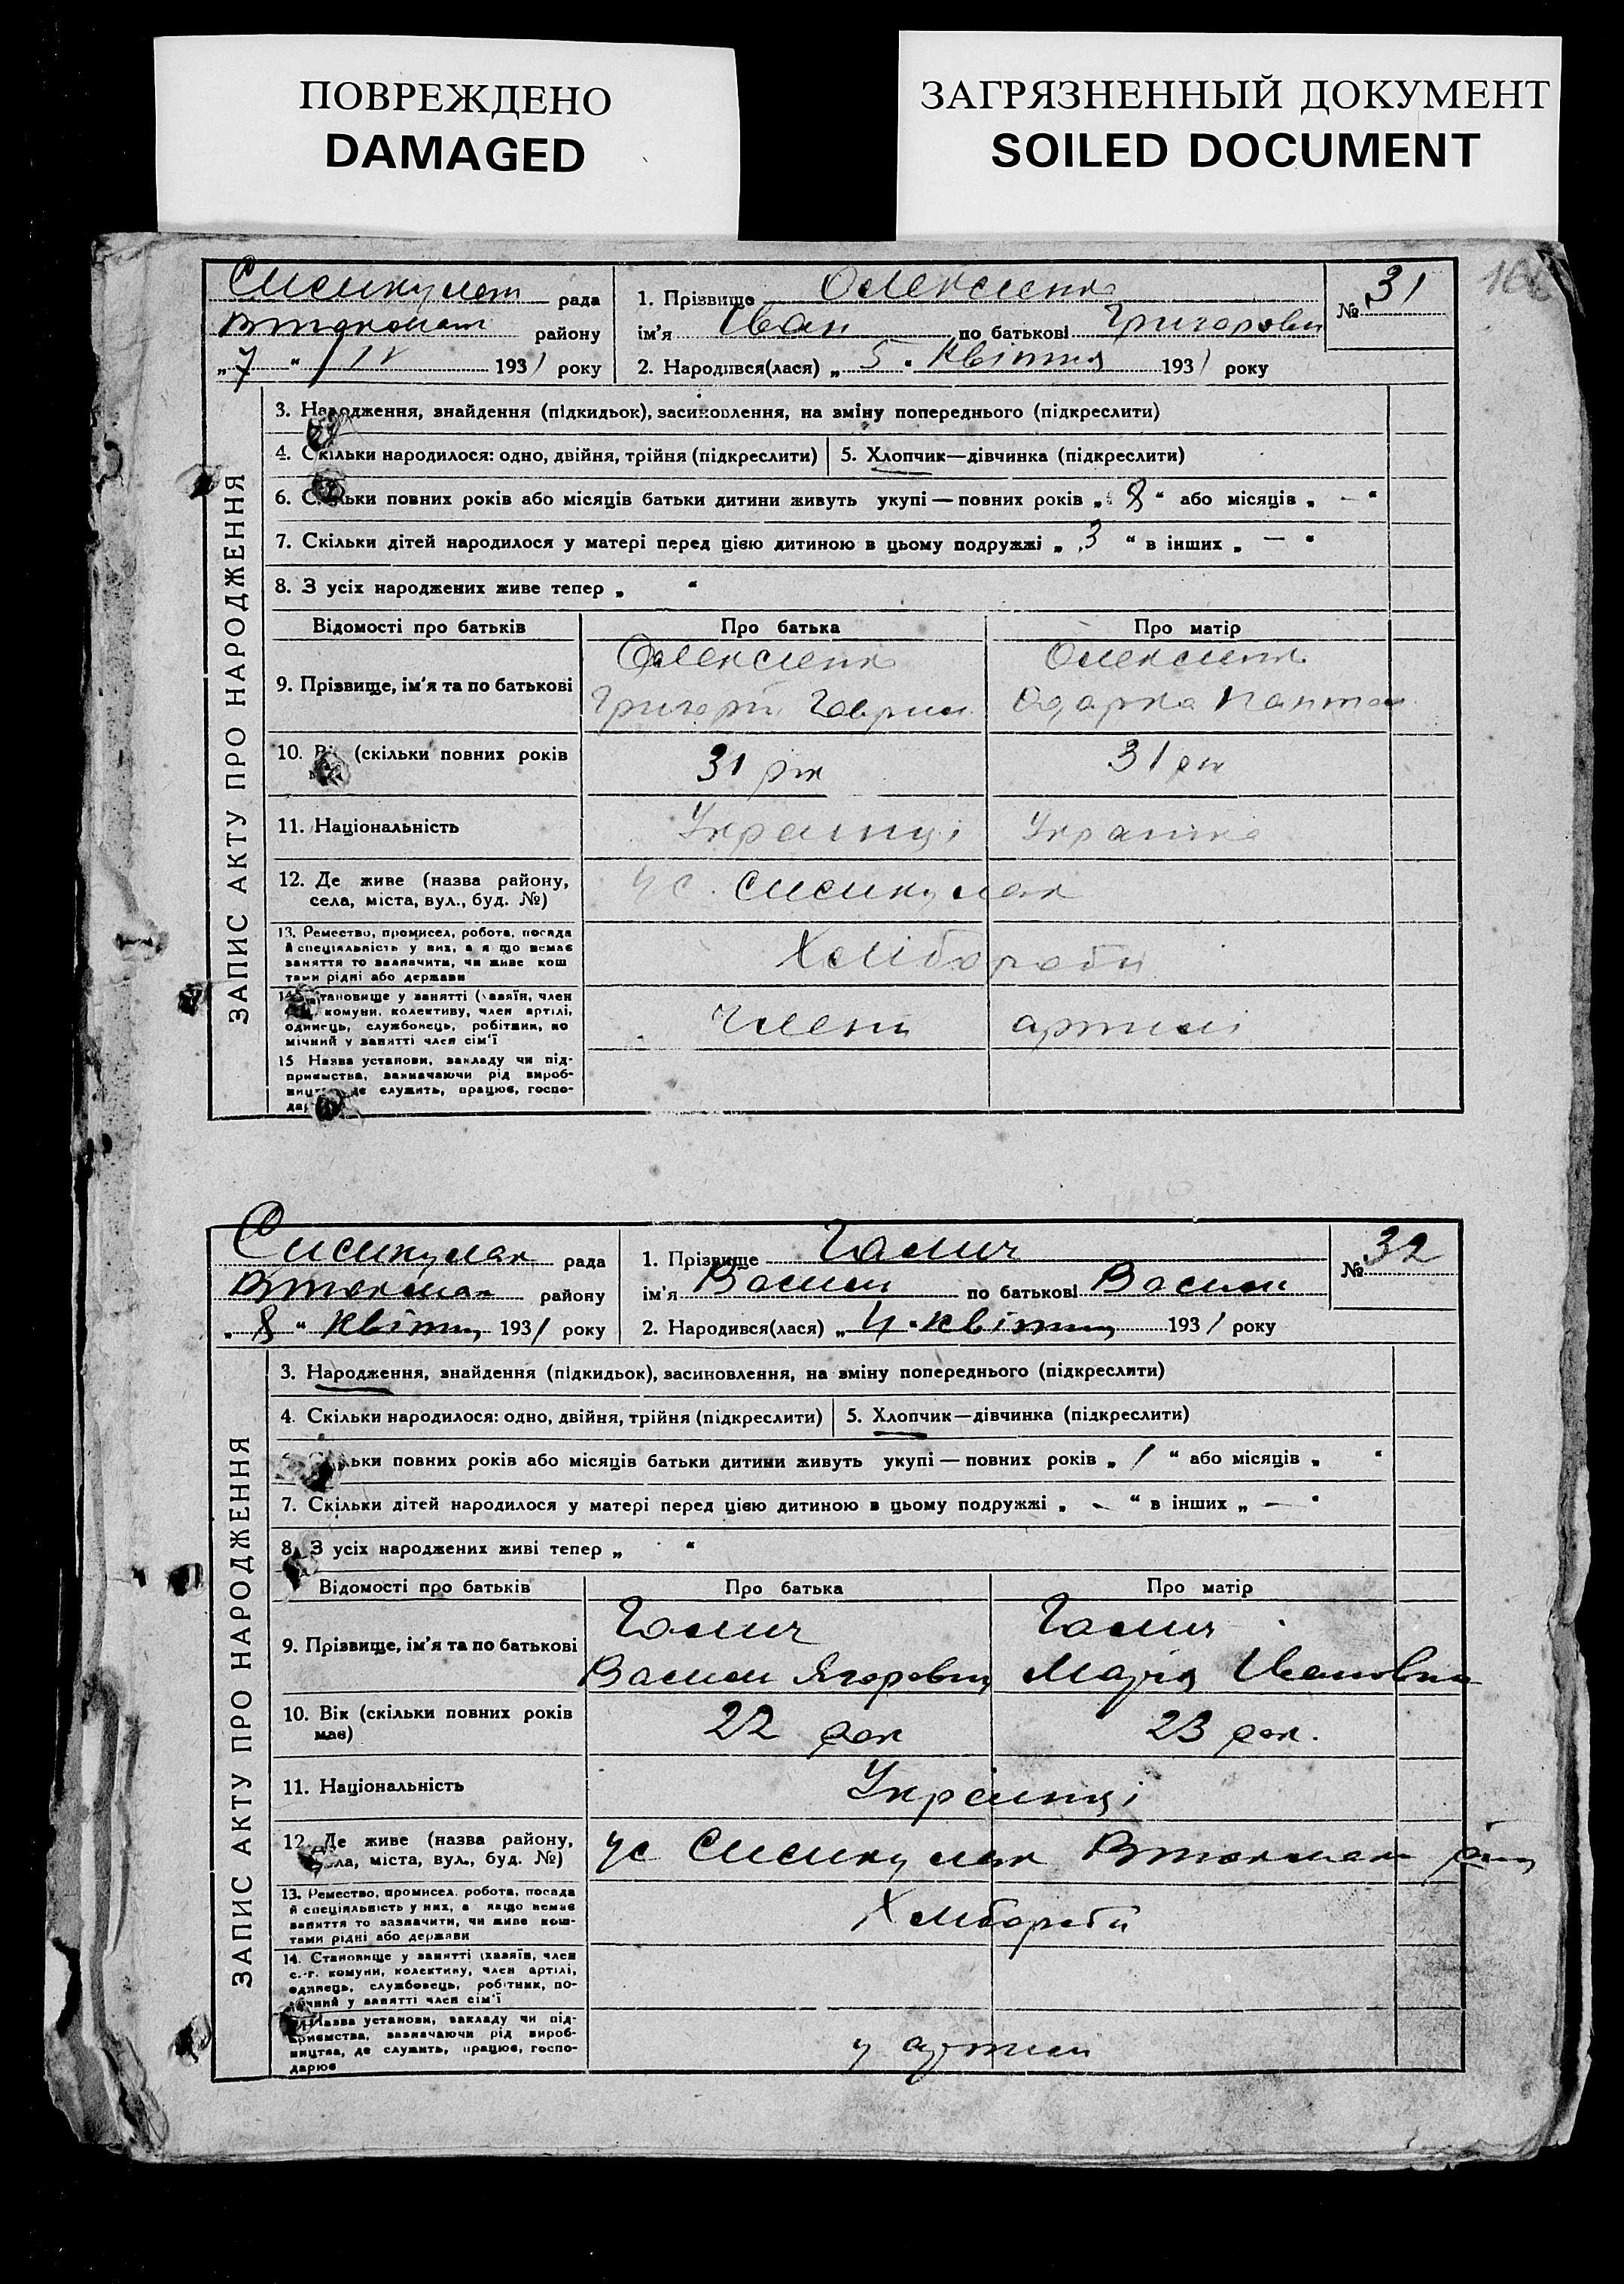 ПОВРЕЖДЕНО
DAMAGED
ЗАГРЯЗНЕННЫЙ ДОКУМЕНТ
SOILED DOCUMENT
рада
району
„7“ IV 1931 року
1. Прізвище Олексієнк
ім'я Іван по батькові Григорович
2. Народився(лася) „5“ квітня 1931 року
№ 31
ЗАПИС АКТУ ПРО НАРОДЖЕННЯ
3. Народження, знайдення (підкидьок), засиновлення, на зміну попереднього (підкреслити)
4. Скільки народилося: одно, двійня, трійня (підкреслити)
5. Хлопчик—дівчинка (підкреслити)
6. Скільки повних років або місяців батьки дитини живуть укупі — повних років „8“ або місяців „—“
7. Скільки дітей народилося у матері перед цією дитиною в цьому подружжі „3“ в інших „—“
8. З усіх народжених живе тепер „ “
Відомості про батьків
Про батька
Про матір
9. Прізвище, ім'я та по батькові
Олексієнк
Григорій Гаврил
Олексієнк
Одарка
10. Вік (скільки повних років
31 рік
31 рік
11. Національність
Українці
Українка
12. Де живе (назва району,
села, міста, вул., буд. №)
у с.
13. Ремество, промисел, робота, посада
й спеціяльність у них, а я що немає
заняття то зазначити, чи живе кош
тами рідні або держави
Хлібороби
14. Становище у занятті (хазяїн, член
комуни, колективу, член артілі,
одинець, службовець, робітник, по
мічний у занятті член сім'ї
Члени артілі
15 Назва установи, закладу чи під-
приємства, зазначаючи рід вироб-
ництва, де служить, працює, госпо-
рада
району
„8“ квітня 1931 року
1. Прізвище Галич
ім'я Василь по батькові Васил
2. Народився(лася) „4“ квітня 1931 року
№ 32
ЗАПИС АКТУ ПРО НАРОДЖЕННЯ
3. Народження, знайдення (підкидьок), засиновлення, на зміну попереднього (підкреслити)
4. Скільки народилося: одно, двійня, трійня (підкреслити)
5. Хлопчик—дівчинка (підкреслити)
Скільки повних років або місяців батьки дитини живуть укупі — повних років „1“ або місяців „ “
7. Скільки дітей народилося у матері перед цією дитиною в цьому подружжі „—“ в інших „—“
8. З усіх народжених живі тепер „ “
Відомості про батьків
Про батька
Про матір
9. Прізвище, ім'я та по батькові
Галич
Василь Ягорович
Галич
Марія Івановна
10. Вік (скільки повних років
має)
22 рок
23 рок.
11. Національність
Українці
12. Де живе (назва району,
села, міста, вул., буд. №)
у с
13. Ремество, промисел, робота, посада
й спеціяльність у них, а якщо немає
заняття то зазначити, чи живе кош-
тами рідні або держави
Хлібороби
14. Становище у занятті (хазяїн, член
с.-г. комуни, колективу, член артілі,
одинець, службовець, робітник, по-
мічний у занятті член сім'ї
Назва установи, закладу чи під-
приємства, зазначаючи рід вироб-
ництва, де служить, працює, госпо-
дарює
у артілі